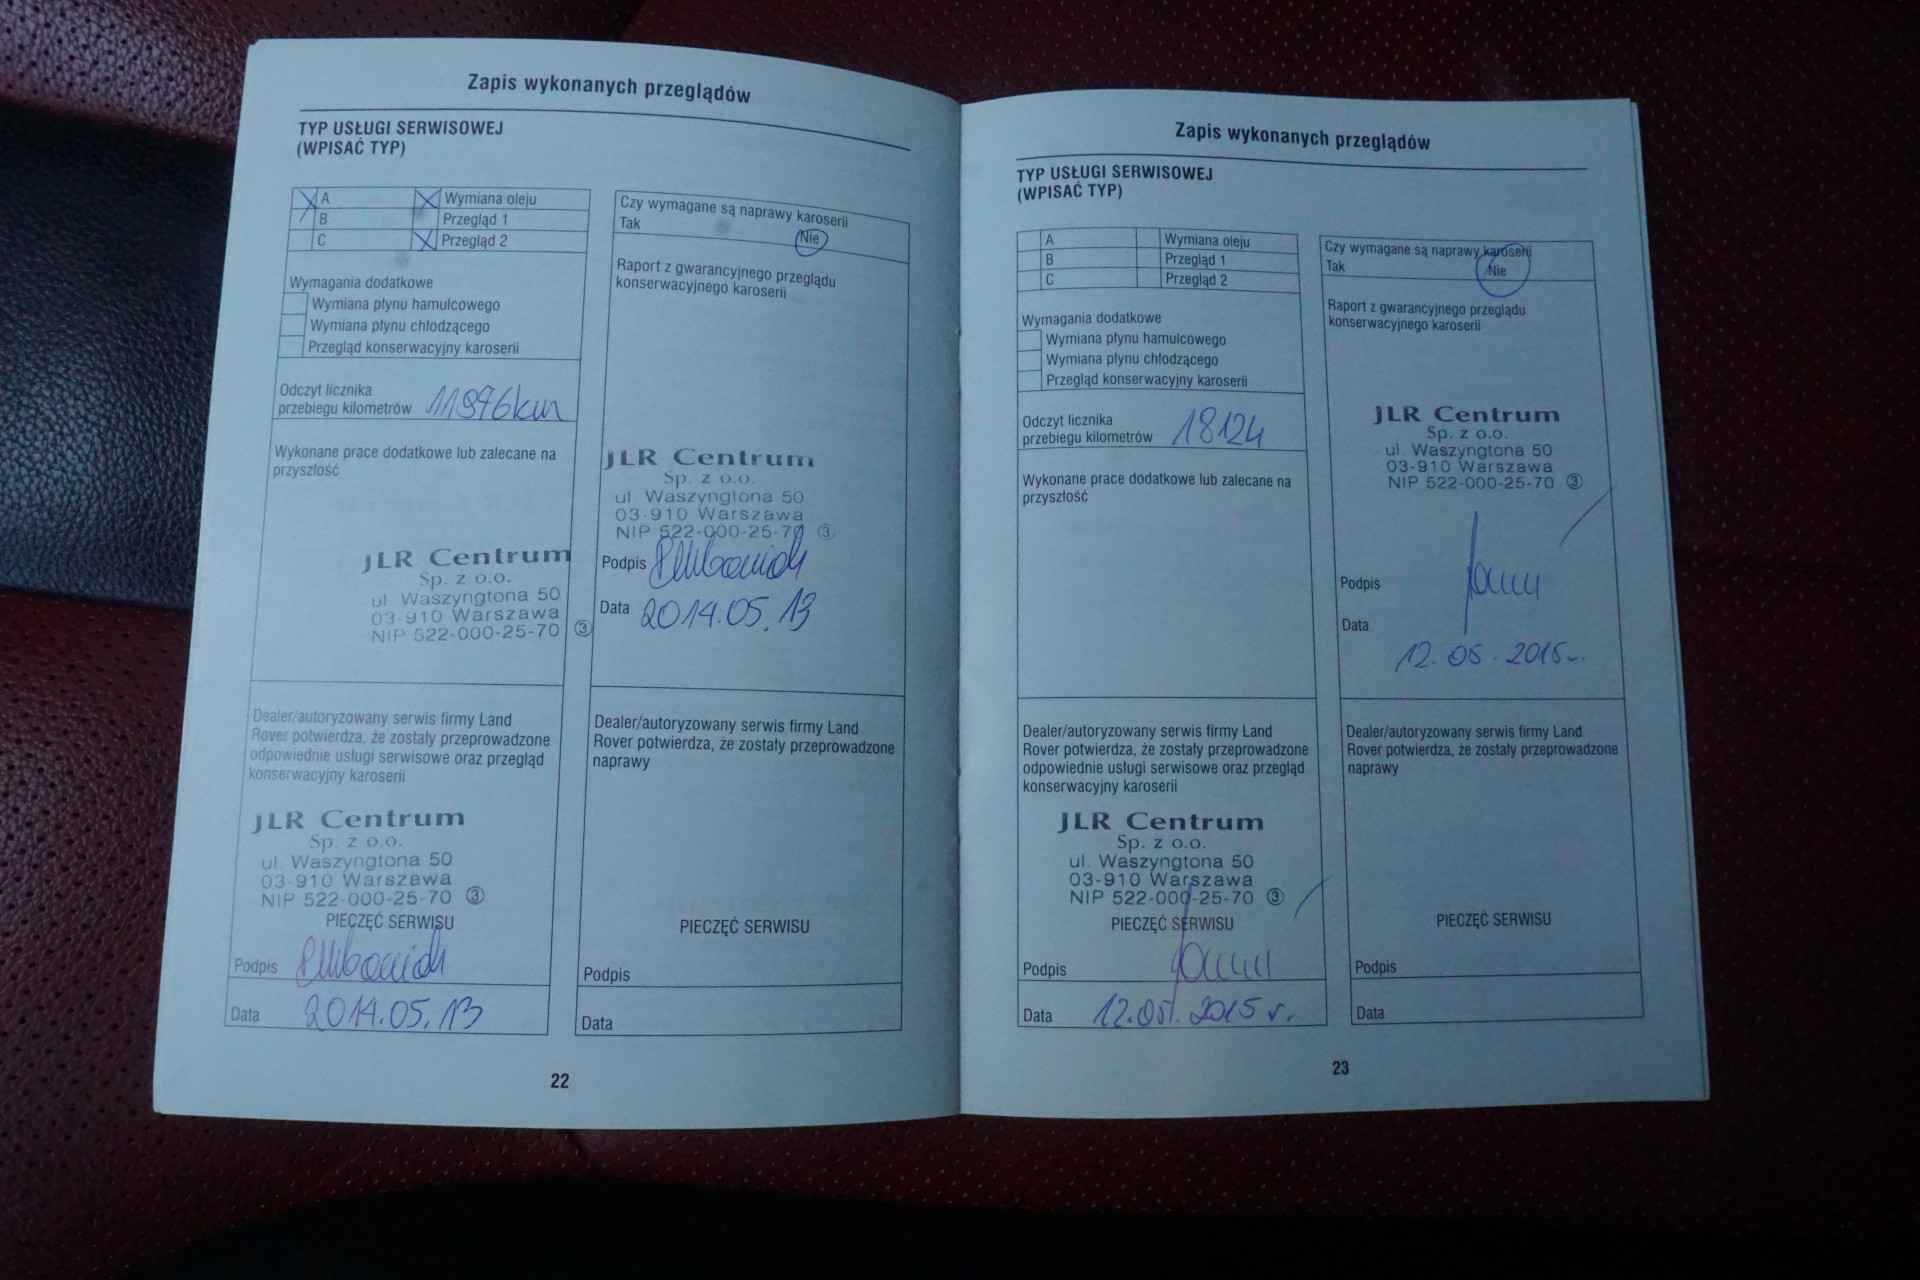 Zapis wykonanych przeglądów
TYP USŁUGI SERWISOWEJ
(WPISAĆ TYP)
A Wymiana oleju
B Przegląd 1
C Przegląd 2
Wymagania dodatkowe
Wymiana płynu hamulcowego
Wymiana płynu chłodzącego
Przegląd konserwacyjny karoserii
Odczyt licznika
przebiegu kilometrów 11976km
Wykonane prace dodatkowe lub zalecane na
przyszłość
JLR Centrum
Sp. z o.o.
ul. Waszyngtona 50
03-910 Warszawa
NIP 522-000-25-70 3
Dealer/autoryzowany serwis firmy Land
Rover potwierdza, że zostały przeprowadzone
odpowiednie usługi serwisowe oraz przegląd
konserwacyjny karoserii
JLR Centrum
Sp. z o.o.
ul. Waszyngtona 50
03-910 Warszawa
NIP 522-000-25-70 3
PIECZĘĆ SERWISU
Podpis
Data 2014.05.13
Czy wymagane są naprawy karoserii
Tak Nie
Raport z gwarancyjnego przeglądu
konserwacyjnego karoserii
JLR Centrum
Sp. z o.o.
ul. Waszyngtona 50
03-910 Warszawa
NIP 522-000-25-70 3
Podpis
Data 2014.05.13
Dealer/autoryzowany serwis firmy Land
Rover potwierdza, że zostały przeprowadzone
naprawy
PIECZĘĆ SERWISU
Podpis
Data
22
Zapis wykonanych przeglądów
TYP USŁUGI SERWISOWEJ
(WPISAĆ TYP)
A Wymiana oleju
B Przegląd 1
C Przegląd 2
Wymagania dodatkowe
Wymiana płynu hamulcowego
Wymiana płynu chłodzącego
Przegląd konserwacyjny karoserii
Odczyt licznika
przebiegu kilometrów 18124
Wykonane prace dodatkowe lub zalecane na
przyszłość
Dealer/autoryzowany serwis firmy Land
Rover potwierdza, że zostały przeprowadzone
odpowiednie usługi serwisowe oraz przegląd
konserwacyjny karoserii
JLR Centrum
Sp. z o.o.
ul. Waszyngtona 50
03-910 Warszawa
NIP 522-000-25-70 3
PIECZĘĆ SERWISU
Podpis
Data 12.05.2015 r.
Czy wymagane są naprawy karoserii
Tak Nie
Raport z gwarancyjnego przeglądu
konserwacyjnego karoserii
JLR Centrum
Sp. z o.o.
ul. Waszyngtona 50
03-910 Warszawa
NIP 522-000-25-70 3
Podpis
Data
12.05.2015r.
Dealer/autoryzowany serwis firmy Land
Rover potwierdza, że zostały przeprowadzone
naprawy
PIECZĘĆ SERWISU
Podpis
Data
23